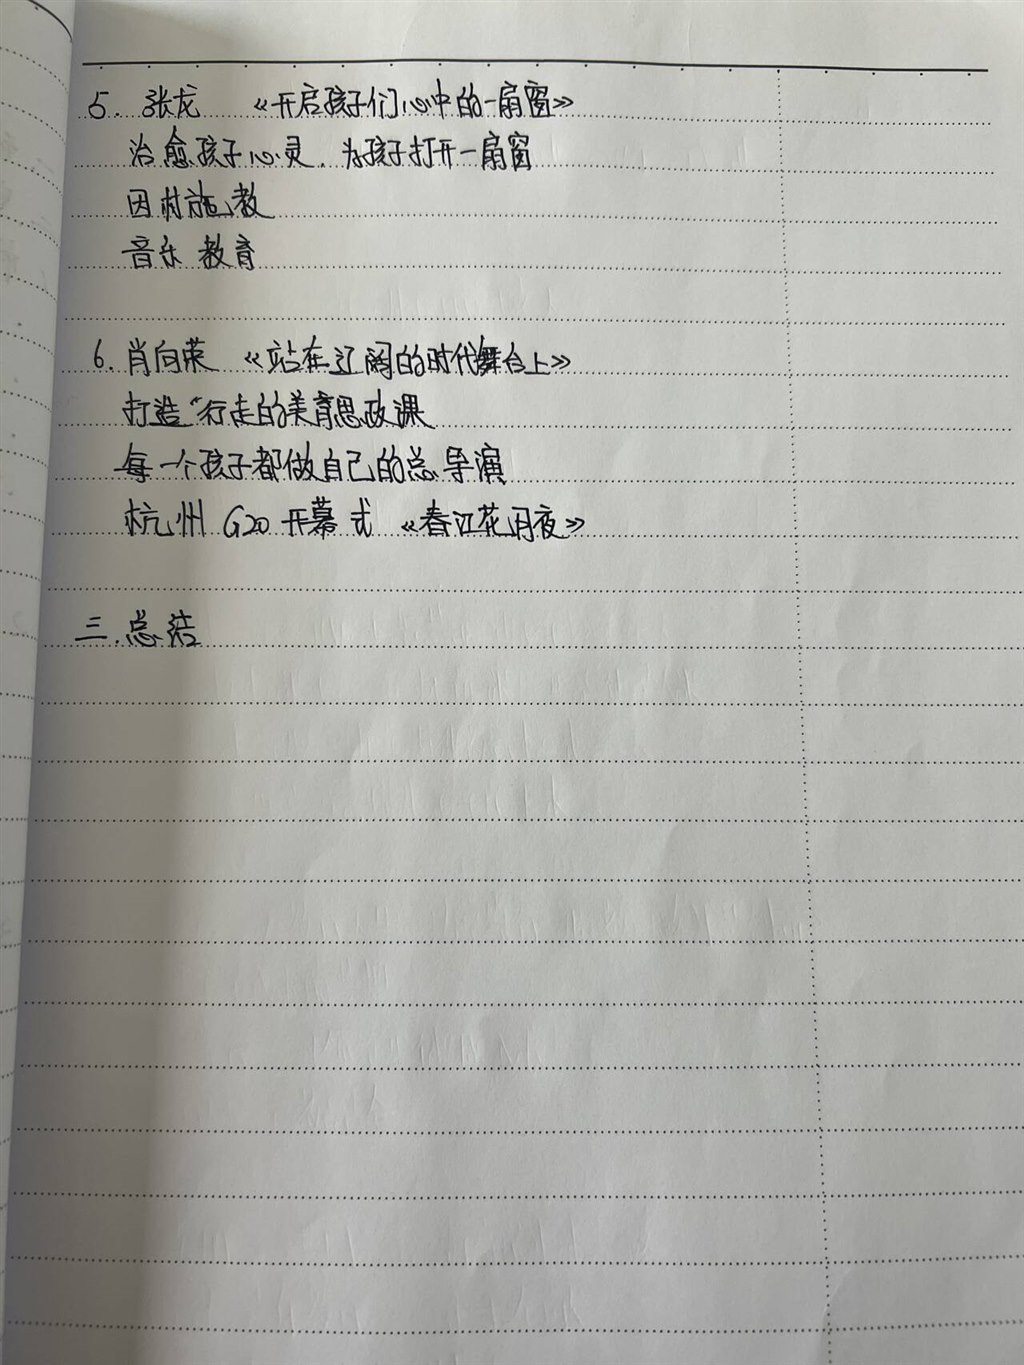 5. 张龙 《开启孩子们心中的一扇窗》
治愈孩子心灵．为孩子打开一扇窗
因材施教
音乐 教育
6. 肖向荣 《站在辽阔的时代舞台上》
打造“行走的美育思政课
每一个孩子都做自己的总导演
杭州 G20 开幕式 《春江花月夜》
三.总结